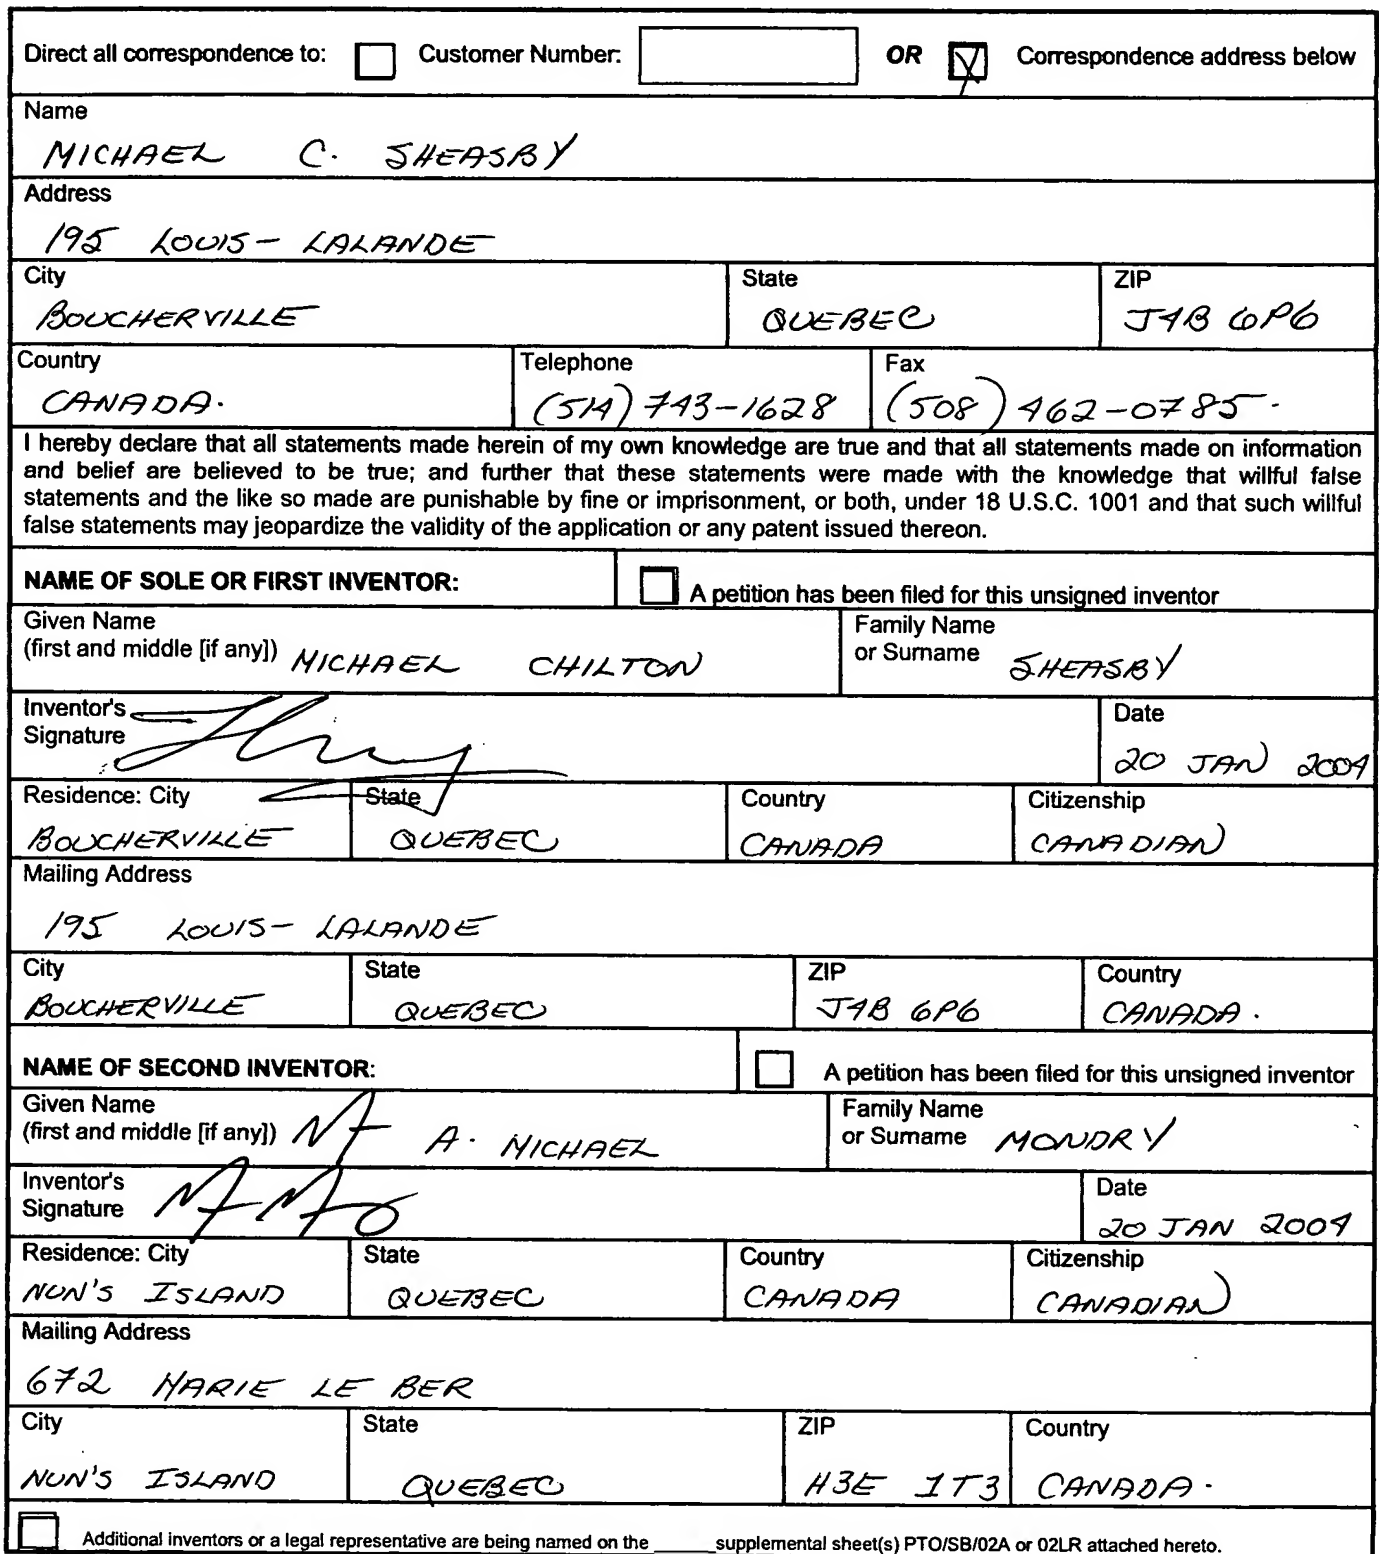 Direct all correspondence to: Customer Number: OR Correspondence address below
Name
MICHAEL C. SHEASBY
Address
195 LOUIS-LALANDE
City State ZIP
BOUCHERVILLE QUEBEC J4B 6P6
Country Telephone Fax
CANADA. (514) 743-1628 (508) 462-0785.
I hereby declare that all statements made herein of my own knowledge are true and that all statements made on information
and belief are believed to be true; and further that these statements were made with the knowledge that willful false
statements and the like so made are punishable by fine or imprisonment, or both, under 18 U.S.C. 1001 and that such willful
false statements may jeopardize the validity of the application or any patent issued thereon.
NAME OF SOLE OR FIRST INVENTOR: A petition has been filed for this unsigned inventor
Given Name Family Name
(first and middle [if any]) MICHAEL CHILTON or Surname SHEASBY
Inventor's Date
Signature 20 JAN 2004
Residence: City State Country Citizenship
BOUCHERVILLE QUEBEC CANADA CANADIAN
Mailing Address
195 LOUIS-LALANDE
City State ZIP Country
BOUCHERVILLE QUEBEC J4B 6P6 CANADA.
NAME OF SECOND INVENTOR: A petition has been filed for this unsigned inventor
Given Name Family Name
(first and middle [if any]) A. MICHAEL or Surname MONDRY
Inventor's Date
Signature 20 JAN 2004
Residence: City State Country Citizenship
NUN'S ISLAND QUEBEC CANADA CANADIAN
Mailing Address
672 MARIE LE BER
City State ZIP Country
NUN'S ISLAND QUEBEC H3E 1T3 CANADA.
Additional inventors or a legal representative are being named on the ______supplemental sheet(s) PTO/SB/02A or 02LR attached hereto.